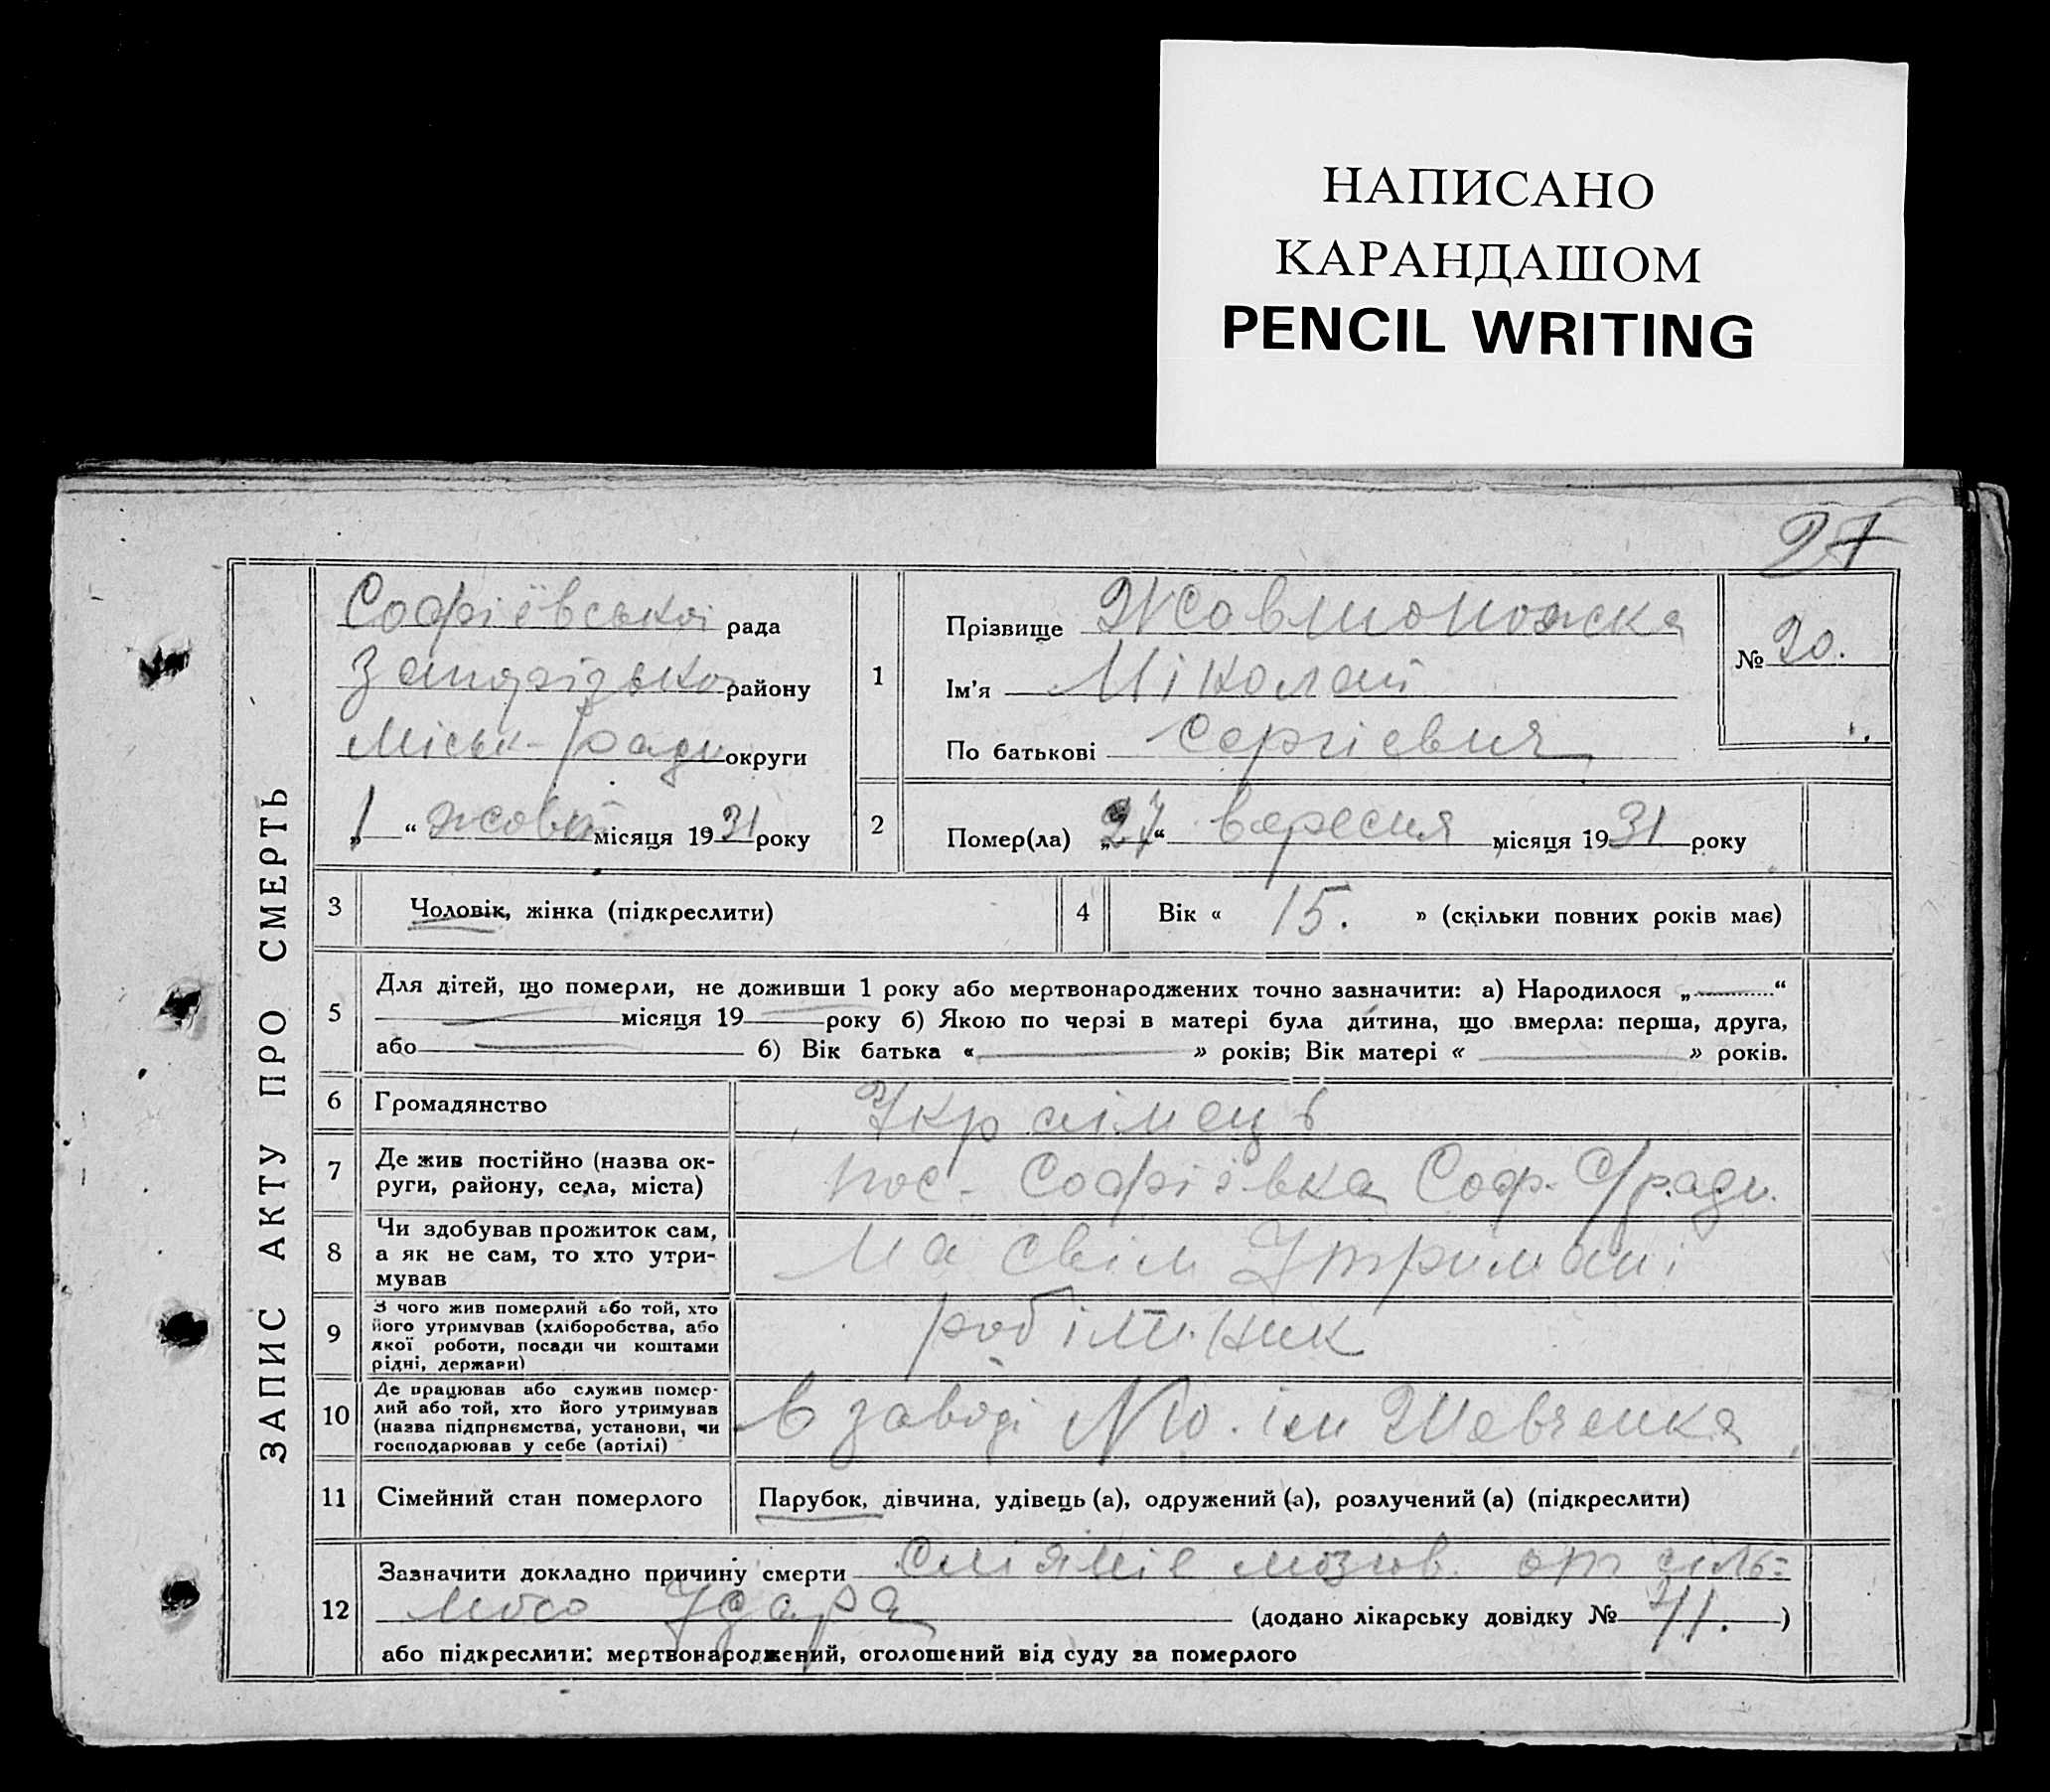 НАПИСАНО
КАРАНДАШОМ
PENCIL WRITING
27
ЗАПИС АКТУ ПРО СМЕРТЬ
Софіївської рада
Запорізько району
Міськ-ради округи
„ 1 “ жовт місяця 1931 року
1
Прізвище Жовтоножка
Ім'я Міколай
По батькові Сергієвич
№ 20.
2
Помер(ла) „27“ вересня місяця 1931 року
3
Чоловік, жінка (підкреслити)
4
Вік « 15. » (скільки повних років має)
5
Для дітей, що померли, не доживши 1 року або мертвонароджених точно зазначити: а) Народилося „ “
місяця 19 року б) Якою по черзі в матері була дитина, що вмерла: перша, друга,
або б) Вік батька « » років; Вік матері « » років.
6
Громадянство
Українець
7
Де жив постійно (назва ок-
руги, району, села, міста)
пос. Софіївка Соф. С/ради.
8
Чи здобував прожиток сам,
а як не сам, то хто утри-
мував
На свім Утримані
9
З чого жив померлий або той, хто
його утримував (хліборобства, або
якої роботи, посади чи коштами
рідні, держави)
робітник
10
Де працював або служив помер-
лий або той, хто його утримував
(назва підприємства, установи, чи
господарював у себе (артілі)
в заводі №10. ім Шевченка
11
Сімейний стан померлого
Парубок, дівчина, удівець (а), одружений (а), розлучений (а) (підкреслити)
12
Зазначити докладно причину смерти мозгов. от сіль-
ного Удара (додано лікарську довідку № 711. )
або підкреслити: мертвонароджений, оголошений від суду за померлого